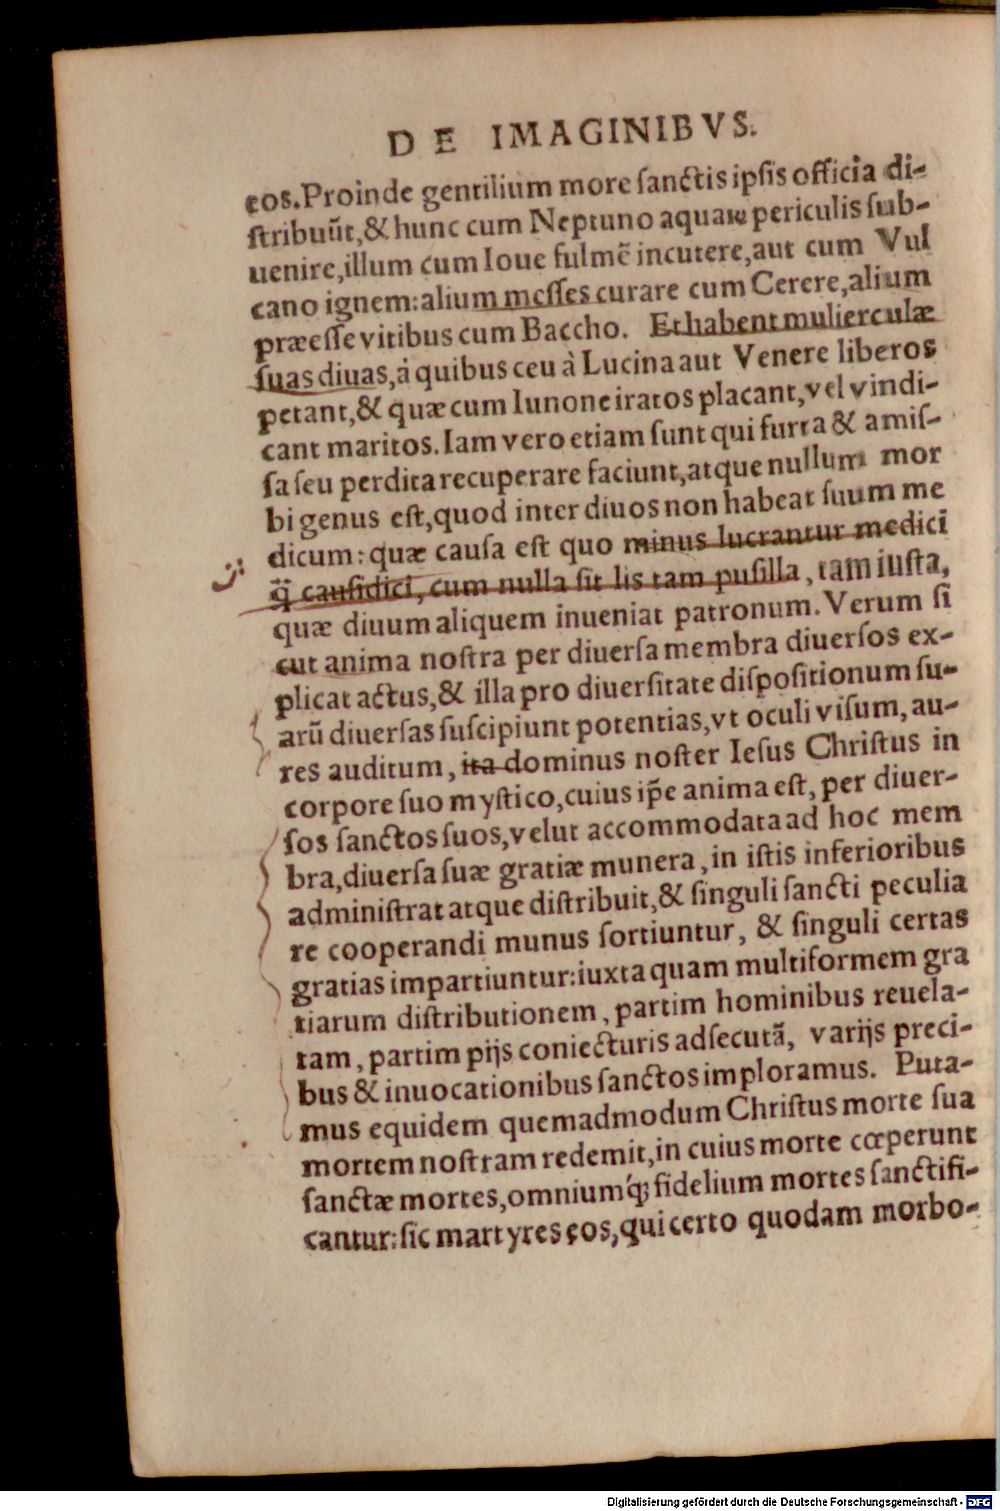 DE IMAGINIBVS.
cos. Proinde gentilium more ſanctis ipſis officia di-
ſtribuũt, & hunc cum Neptuno aquaꝝ periculis ſub-
uenire, illum cum Ioue fulmẽ incutere, aut cum Vul
cano ignem: alium meſſes curare cum Cerere, alium
præeſſe vitibus cum Baccho. Et habent mulierculæ
ſuas diuas, à quibus ceu à Lucina aut Venere liberos
petant, & quæ cum Iunone iratos placant, vel vindi-
cant maritos. Iam vero etiam ſunt qui furta & amiſ-
ſa ſeu perdita recuperare faciunt, atque nullum mor
bi genus eſt, quod inter diuos non habeat ſuum me
dicum: quæ cauſa eſt quo minus lucrantur medici
q̃ cauſidici, cum nulla ſit lis tam puſilla, tam iuſta,
quæ diuum aliquem inueniat patronum. Verum ſi
cut anima noſtra per diuerſa membra diuerſos ex-
plicat actus, & illa pro diuerſitate diſpoſitionum ſu-
arũ diuerſas ſuſcipiunt potentias, vt oculi viſum, au-
res auditum, ita dominus noſter Ieſus Chriſtus in
corpore ſuo myſtico, cuius ip̃e anima eſt, per diuer-
ſos ſanctos ſuos, velut accommodata ad hoc mem
bra, diuerſa ſuæ gratiæ munera, in iſtis inferioribus
adminiſtrat atque diſtribuit, & ſinguli ſancti peculia
re cooperandi munus ſortiuntur, & ſinguli certas
gratias impartiuntur: iuxta quam multiformem gra
tiarum diſtributionem, partim hominibus reuela-
tam, partim pijs coniecturis adſecutã, varijs preci-
bus & inuocationibus ſanctos imploramus. Puta-
mus equidem quemadmodum Chriſtus morte ſua
mortem noſtram redemit, in cuius morte cœperunt
ſanctæ mortes, omniumq́; fidelium mortes ſanctifi-
cantur: ſic martyres eos, qui certo quodam morbo-
Digitalisierung gefördert durch die Deutsche Forschungsgemeinschaft - DFG